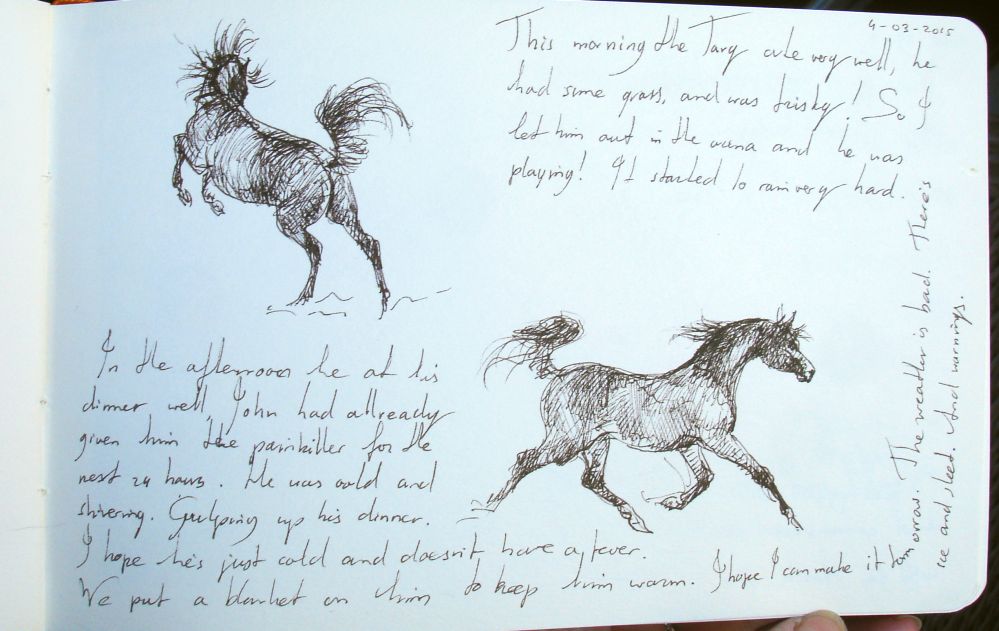 4-03-2015
This morning the Tarq ate very well, he
had some grass, and was frisky! So I
let him out in the arena and he was
playing! It started to rain very hard.
In the afternoon he at his
dinner well, John had allready
given him the painkiller for the
next 24 hours. He was cold and
shivering. Gulping up his dinner.
I hope he's just cold and doesn't have a fever.
We put a blanket on him to keep him warm. I hope I can make it tomorrow. The weather is bad. There's
ice and sleet. And warnings.